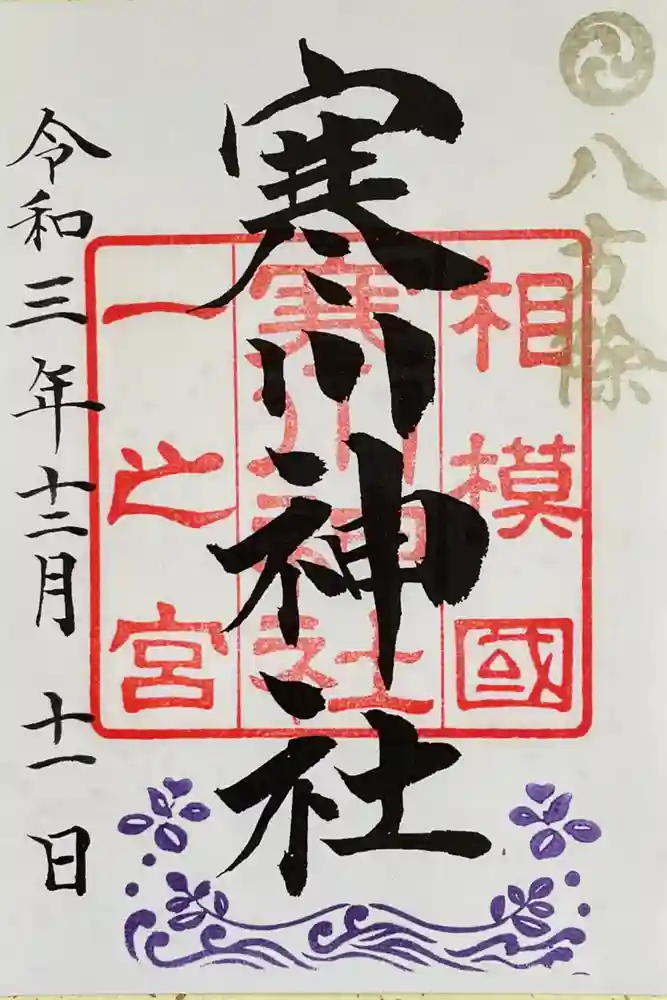 八方除
寒川神社
相模國
寒川神社
一之宮
令和三年十二月十一日